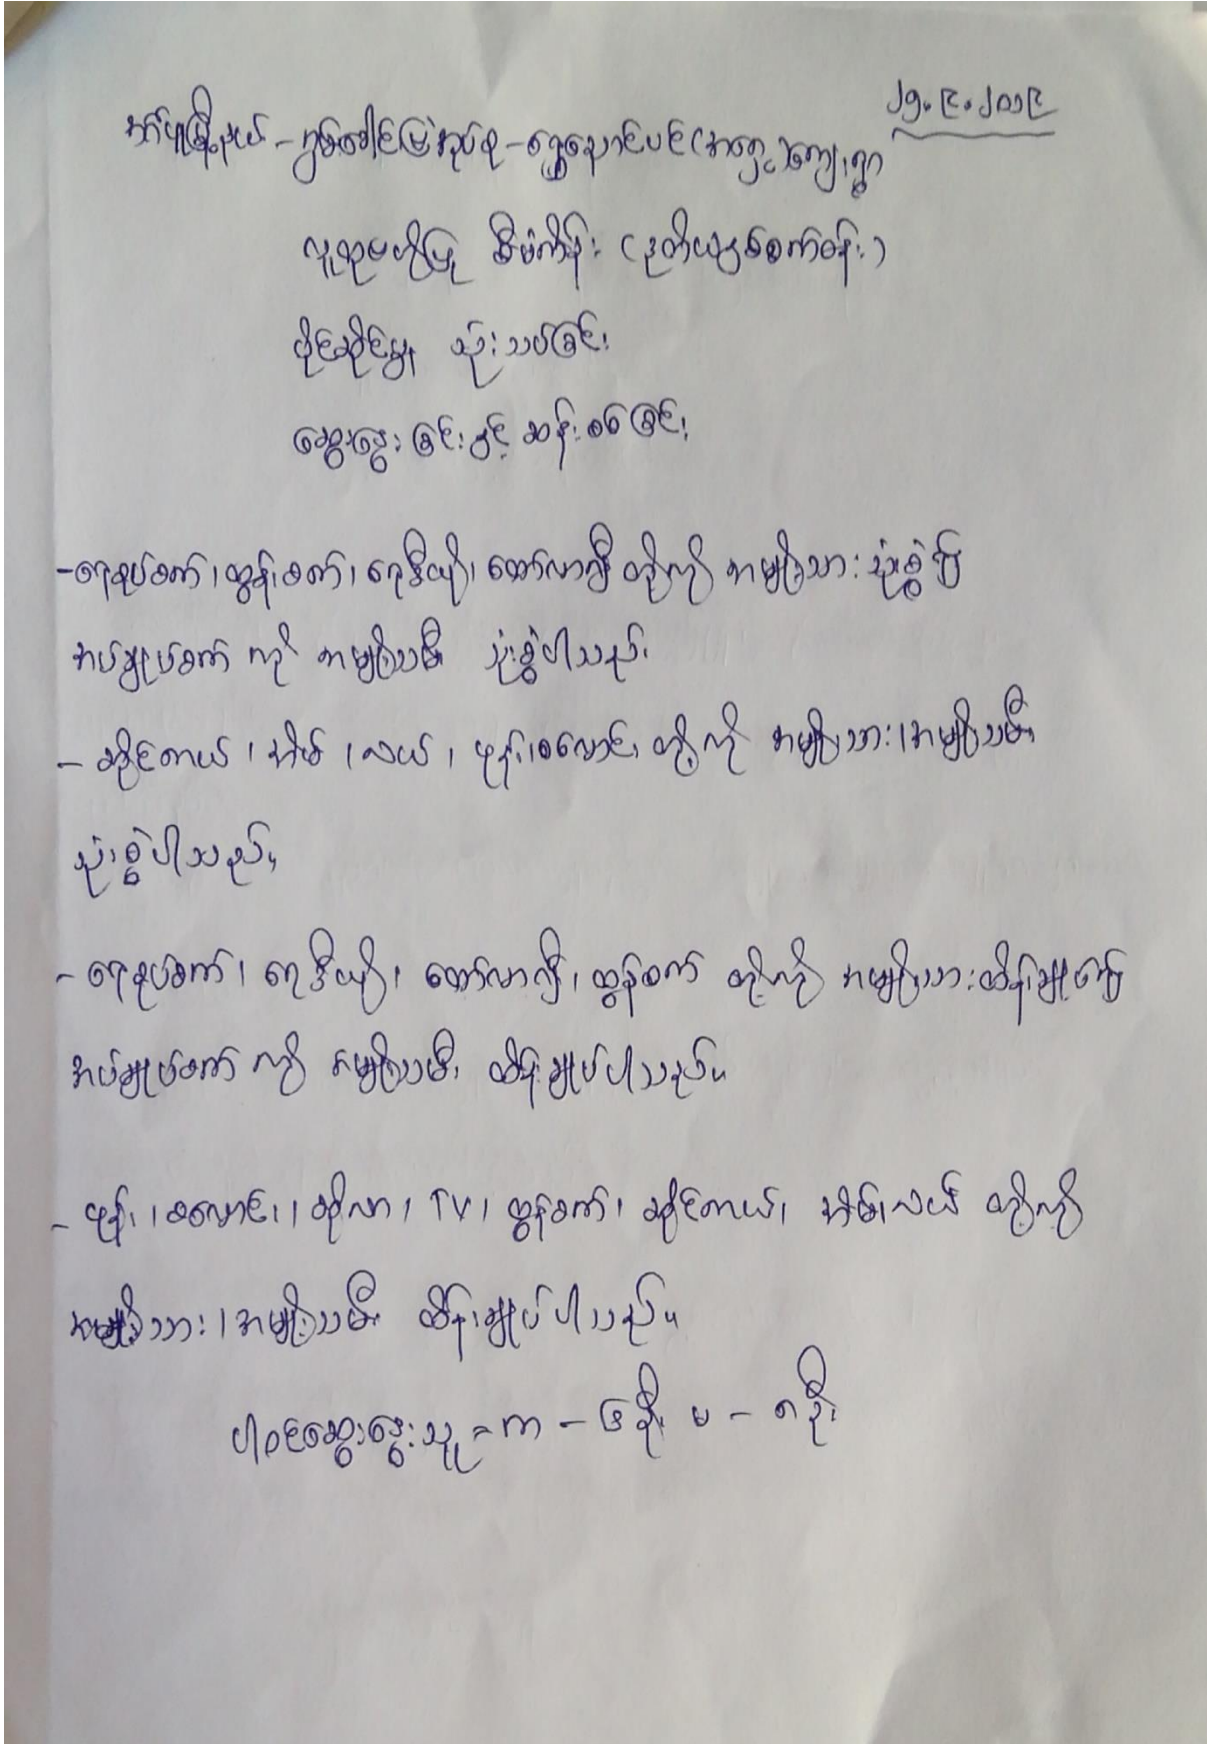 ၂၅.၉.၂၀၁၉
အင်္ဂပူမြို့နယ် - ကွမ်းခေါင်မြဲအုပ်စု - ရွှေညောင်ပင်(အရှေ့)ကျေးရွာ
လူထုဗဟိုပြု စီမံကိန်း (ဒုတိယနှစ်စက်ဝန်း)
ပိုင်ဆိုင်မှု၊ သုံးသပ်ခြင်း
ဆွေးနွေးခြင်းနှင့် ဆန်းစစ်ခြင်း
- ရေစုပ်စက်၊ ထွန်စက်၊ ရေဒီယို၊ ထော်လာဂျီ တို့ကို အမျိုးသား သုံးစွဲပြီး
အပ်ချုပ်စက် ကို အမျိုးသမီး သုံးစွဲပါသည်။
- ဆိုင်ကယ်၊ အိမ်၊ လယ်၊ ဖုန်း၊ စလောင်း တို့ကို အမျိုးသား၊ အမျိုးသမီး
သုံးစွဲပါသည်။
- ရေစုပ်စက်၊ ရေဒီယို၊ ထော်လာဂျီ၊ ထွန်စက် တို့ကို အမျိုးသားထိန်းချုပ်ပြီး
အပ်ချုပ်စက် ကို အမျိုးသမီး ထိန်းချုပ်ပါသည်။
- ဖုန်း၊ စလောင်း၊ ဆိုလာ၊ TV၊ ထွန်စက်၊ ဆိုင်ကယ်၊ အိမ်၊ လယ် တို့ကို
အမျိုးသား၊ အမျိုးသမီး ထိန်းချုပ်ပါသည်။
ပါဝင်ဆွေးနွေးသူ = ကာ - ၆ ဦး မ - ၈ ဦး